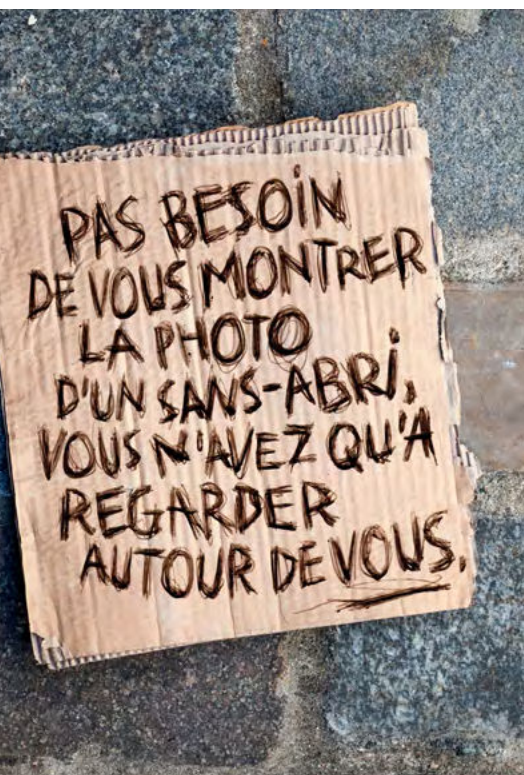 PAS BESOIN
DE VOUS MONTRER
LA PHOTO
D'UN SANS-ABRI,
VOUS N'AVEZ QU'À
REGARDER
AUTOUR DE VOUS.